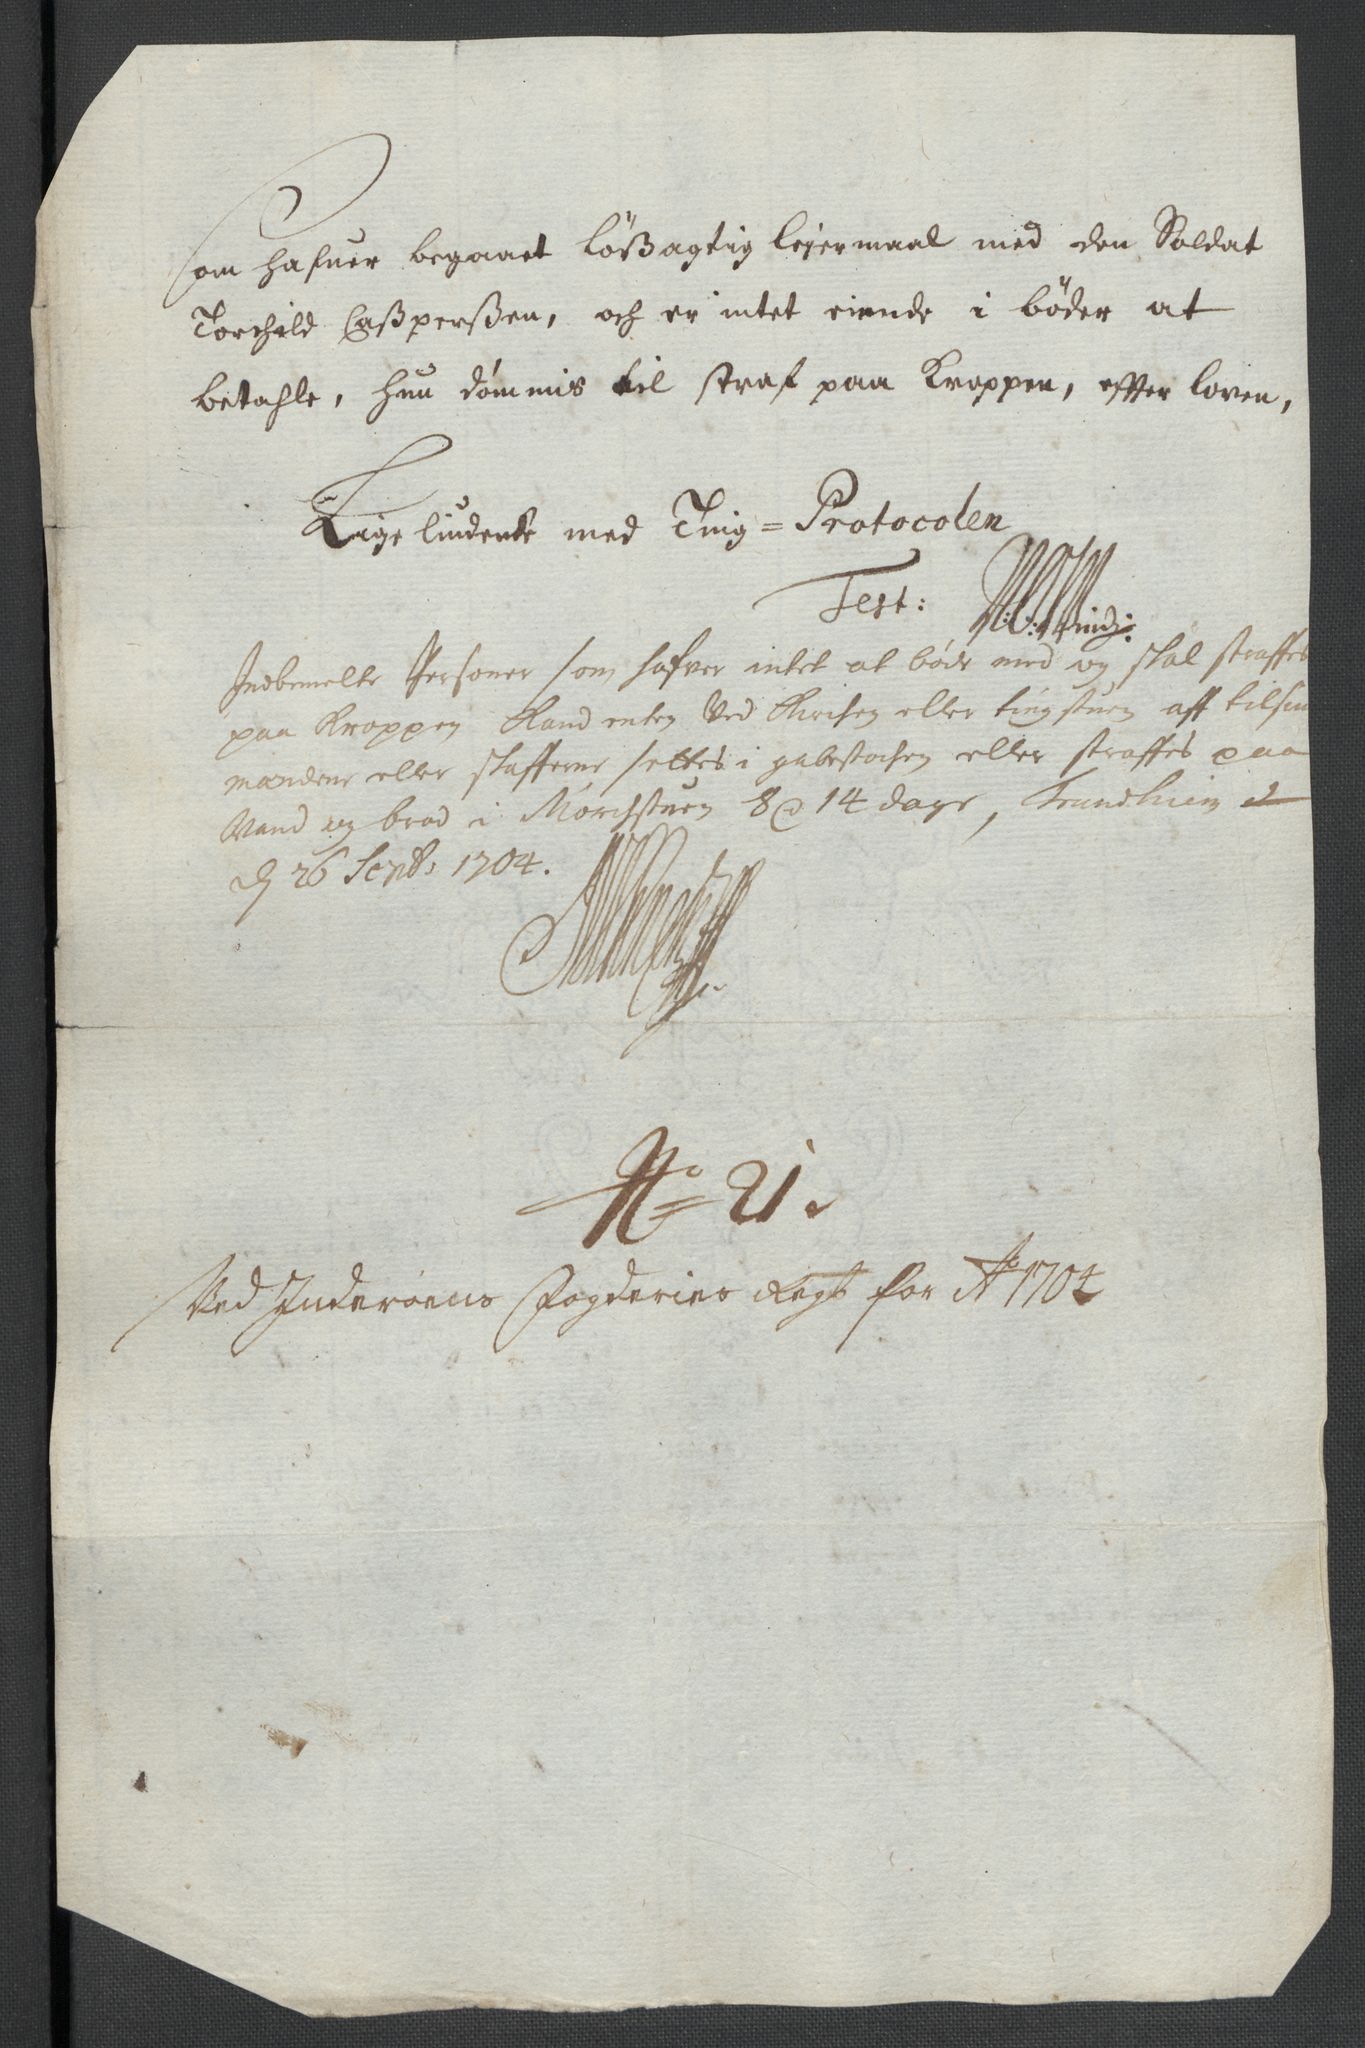 Som hafuer begaaet lößagtig leyermaal med den Soldat
Torchild Caßperßen, och er intet eiende i böder at
betahle, hun dömmis til straf paa Kroppen, effter loven,
Lige liudende med Ting=Protocolen
Test:
Indbemelte Personer som hafver intet at böde med og skal straffes
paa Kroppen kand enten Ved Kirchen eller tingstuen aff
mandene eller skafferne settes i gabestochen eller straffes paa
Vand og brød i Mörchstuen 8 @ 14 dage, Trundhiem d
d 26 Septb: 1704.
No= 21.
Ved Inderøens Fogderies Regsb for Ao 1704